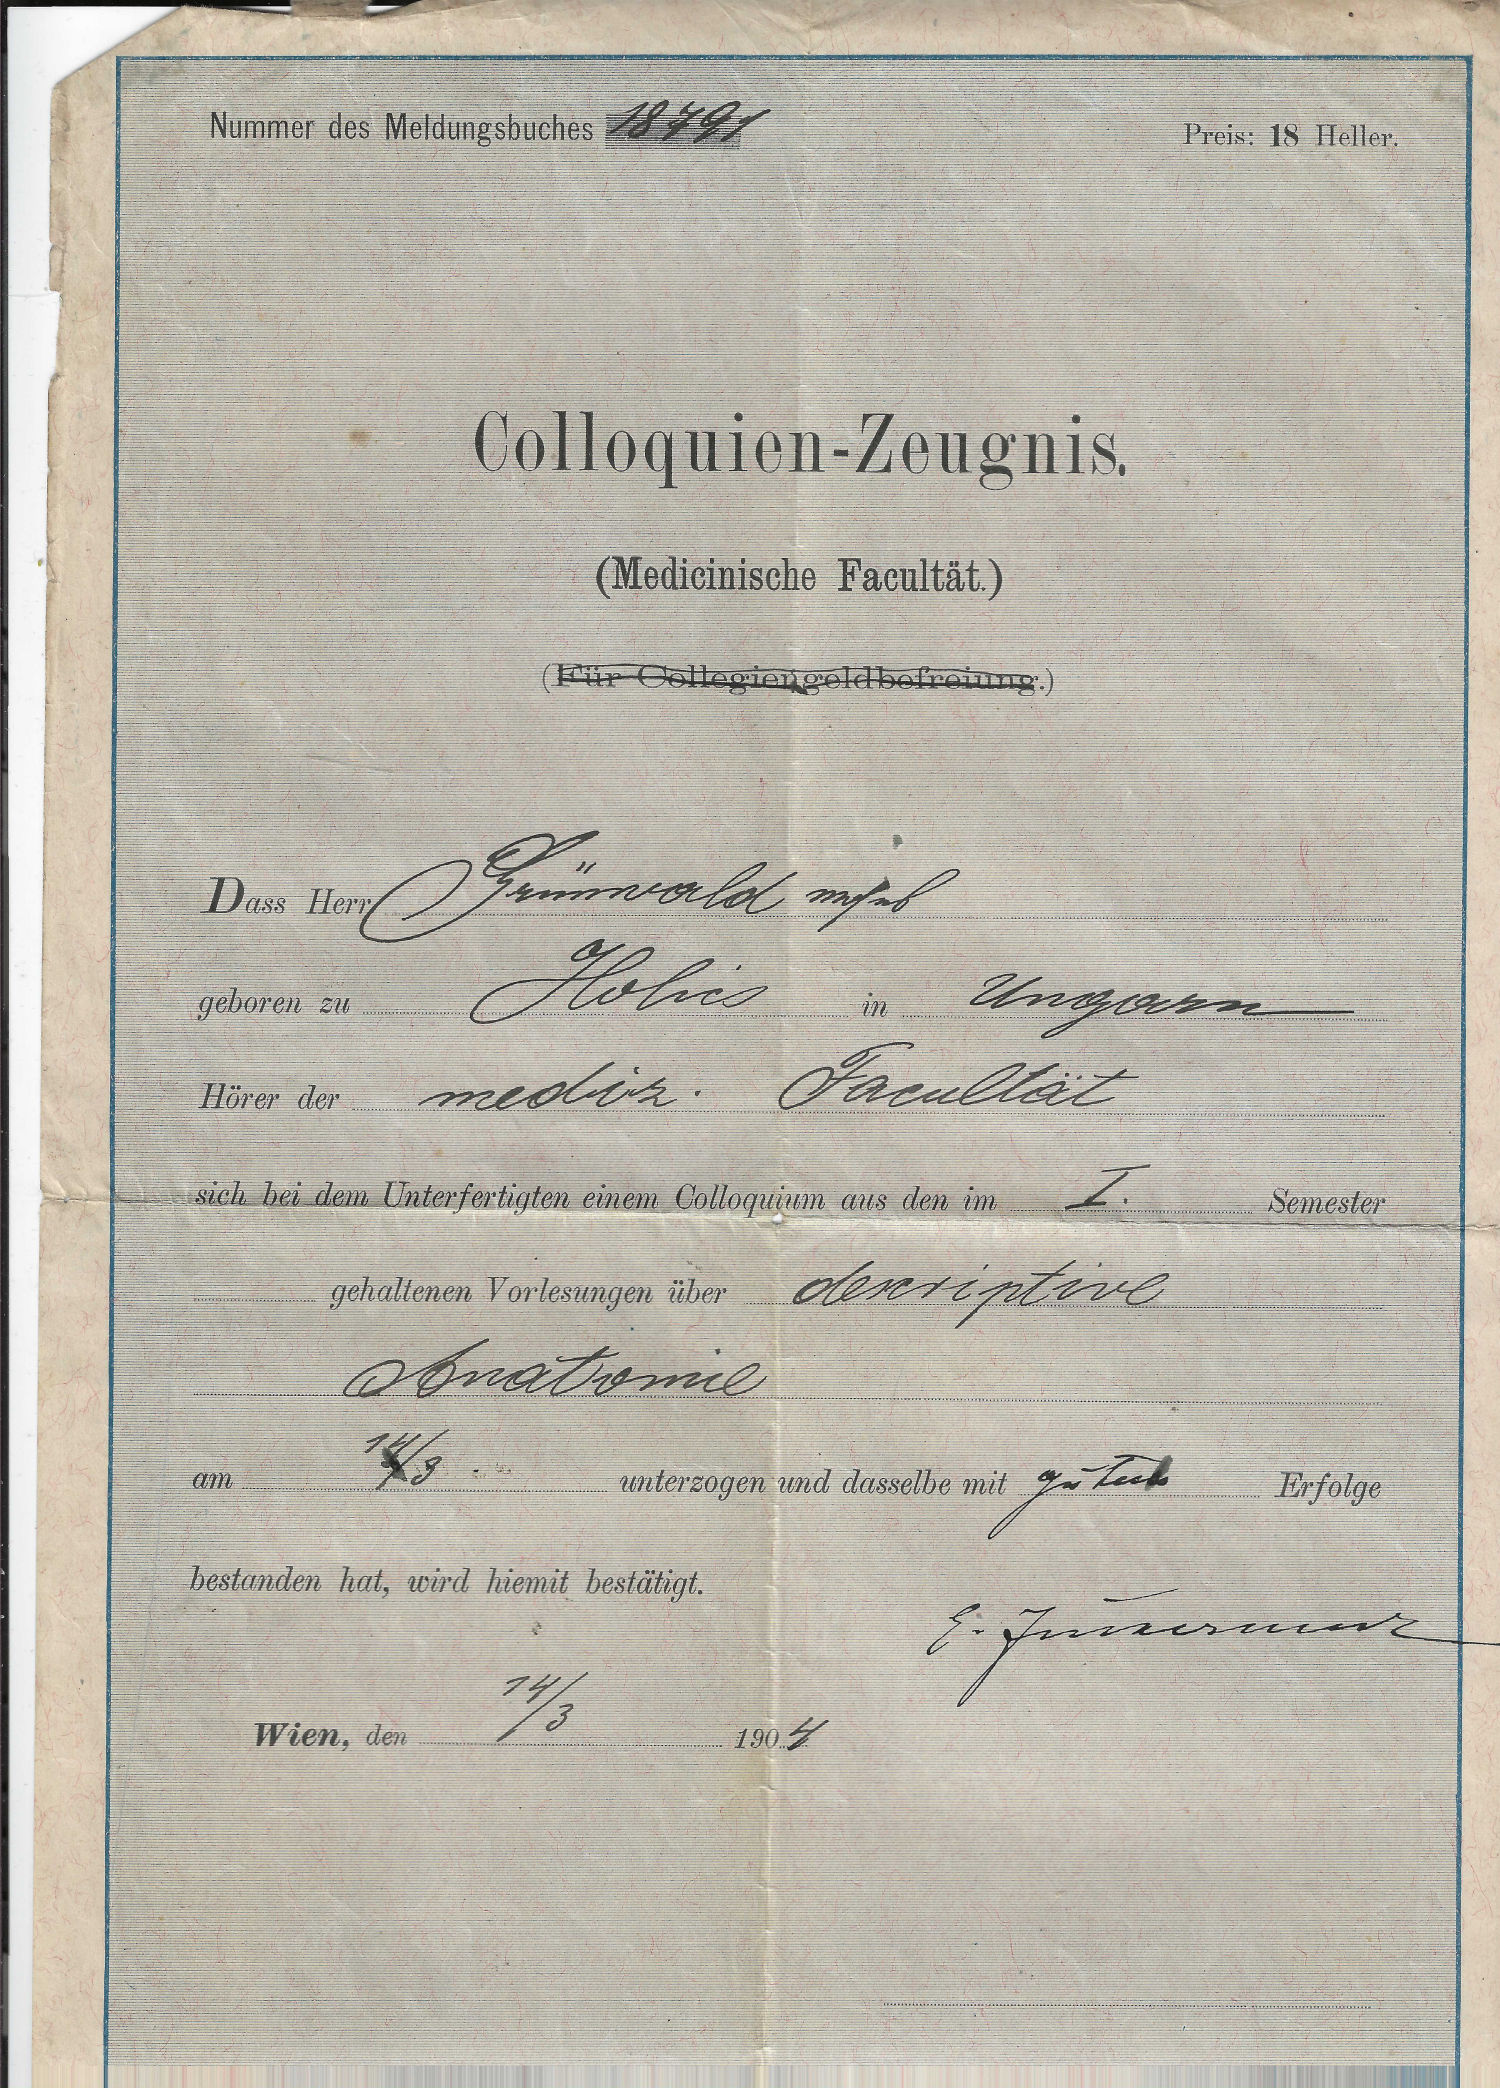 Nummer des Meldungsbuches 18791
Preis: 18 Heller.
Colloquien-Zeugnis.
(Medicinische Facultät.)
(Für Collegiengeldbefreiung.)
Dass Herr Grünwald
geboren zu Holics in Ungarn
Hörer der mediz. Facultät
sich bei dem Unterfertigten einem Colloquium aus den im I. Semester
gehaltenen Vorlesungen über descriptive
Anatomie
am 14/3 unterzogen und dasselbe mit gutem Erfolge
bestanden hat, wird hiemit bestätigt.
E.
Wien, den 14/3 1904